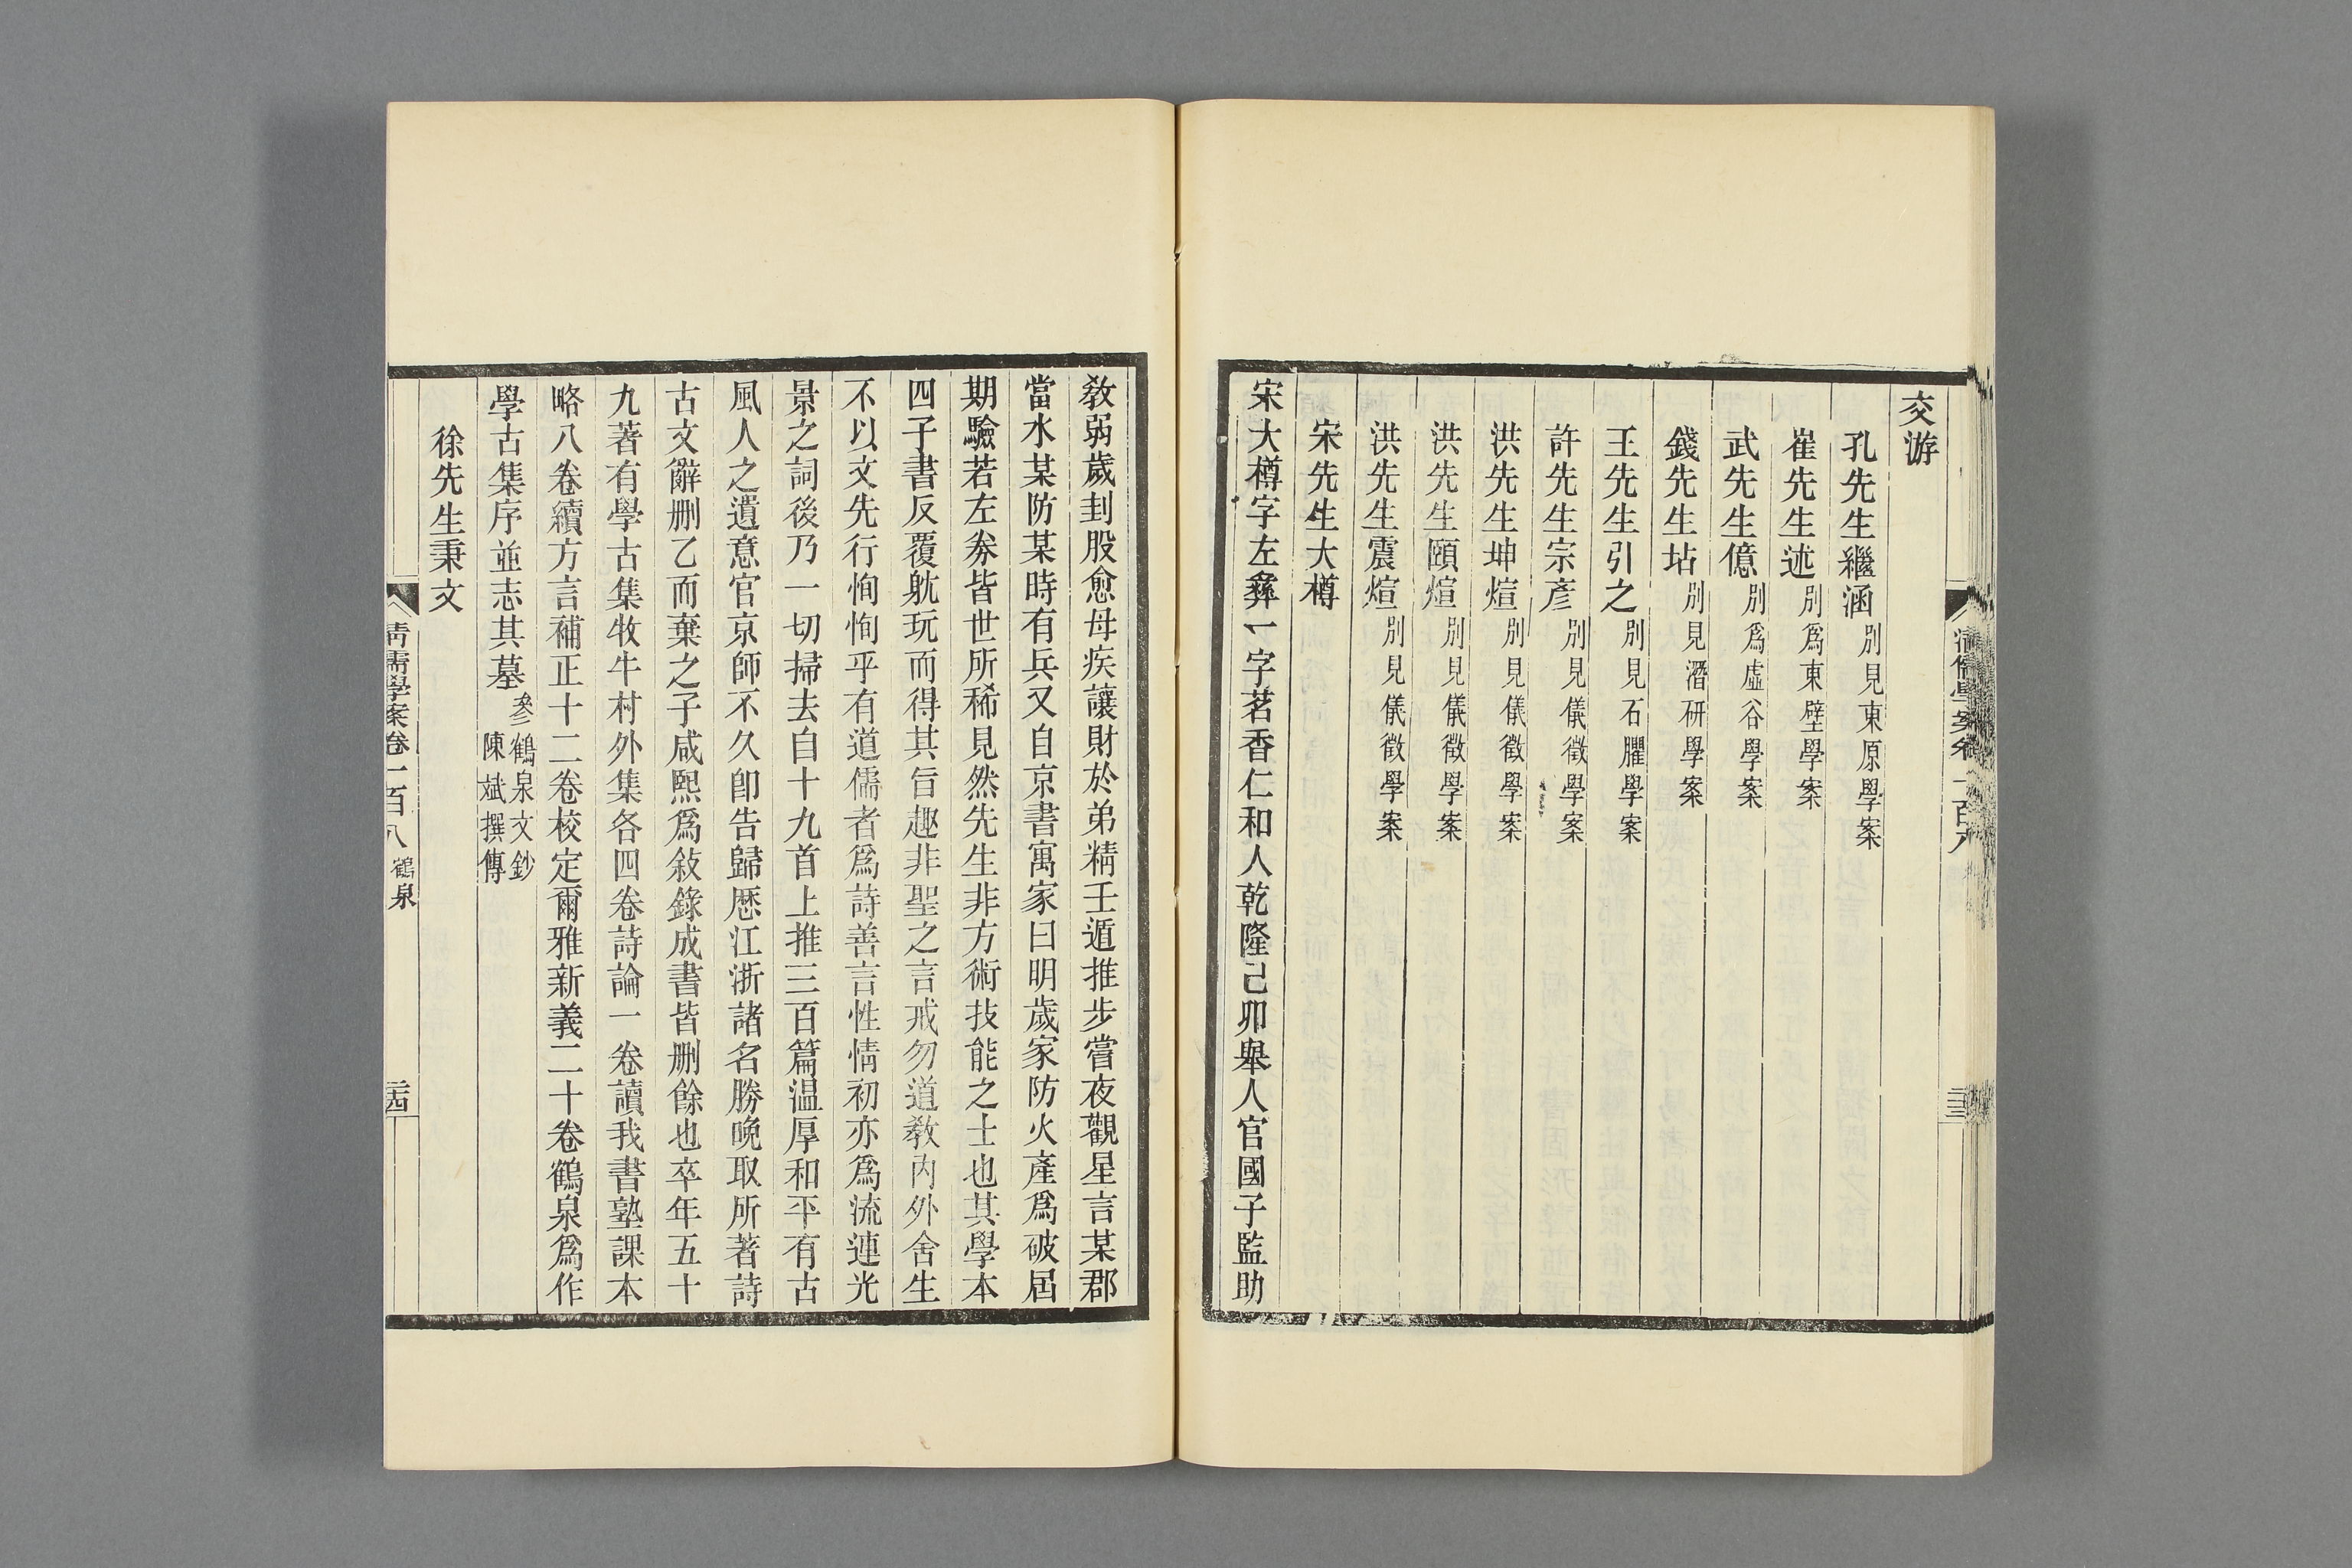 清儒學案卷一百八
二十三
交游
孔先生繼涵 別見東原學案
崔先生述 別爲東壁學案
武先生億 別爲虛谷學案
錢先生坫 別見潛研學案
王先生引之 別見石臞學案
許先生宗彥 別見儀徵學案
洪先生坤煊 別見儀徵學案
洪先生頤煊 別見儀徵學案
洪先生震煊 別見儀徵學案
宋先生大樽
宋大樽字左彝一字茗香仁和人乾隆己卯舉人官國子監助
敎弱歲刲股愈母疾讓財於弟精壬遁推步嘗夜觀星言某郡
當水某防某時有兵又自京書寓家曰明歲家防火產爲破屆
期驗若左劵皆世所稀見然先生非方術技能之士也其學本
四子書反覆躭玩而得其旨趣非聖之言戒勿道敎內外舍生
不以文先行恂恂乎有道儒者爲詩善言性情初亦爲流連光
景之詞後乃一切掃去自十九首上推三百篇温厚和平有古
風人之遺意官京師不久卽告歸歷江浙諸名勝晚取所著詩
古文辭删乙而棄之子咸熙爲敍錄成書皆删餘也卒年五十
九著有學古集牧牛村外集各四卷詩論一卷讀我書塾課本
略八卷續方言補正十二卷校定爾雅新義二十卷鶴泉爲作
學古集序並志其墓 參鶴泉文鈔 陳斌撰傳
徐先生秉文
清儒學案卷一百八 鶴泉
二十四